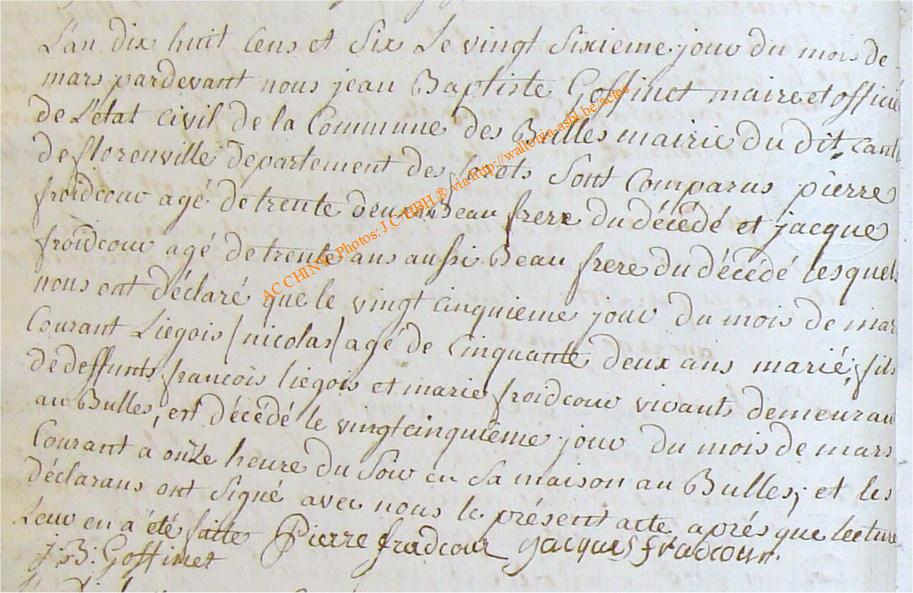 L'an dix huit cens et six Le vingt sixieme jour du mois de
mars pardevant nous jean Baptiste Goffinet maire et officie
de L'état civil de la Commune des Bulles mairie du dit cant
de florenville département des forets Sont comparus pierre
froidcour agé de trente deux Beau frere du décédé et jacque
froidcour agé de trente ans aussi Beau frere du décédé lesquel
nous ont déclaré que le vingt cinquieme jour du mois de mar
Courant Liegois (nicolas) agé de Cinquante deux ans marié, fils
de deffunts françois liegois et marie froidcour vivants demeuran
au Bulles, est décédé le vingt cinquiéme jour du mois de mars
Courant a onze heure du Soir en Sa maison au Bulles; et les
déclarans ont Signé avec nous le présent acte aprés que lecture
Leur en a été faitte Pierre fradcour Jacques fradcour
J: B: Goffinet
ACCHINE Photos: J.C. HBH.® via http://wallonia-asbl.be/actes